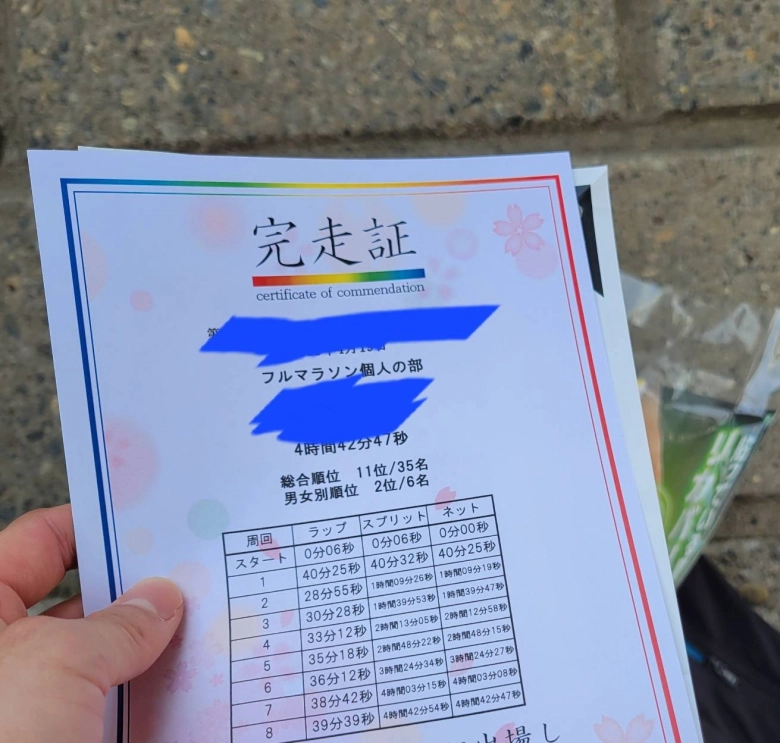 完走証
certificate of commendation
第
フルマラソン個人の部
4時間42分47秒
総合順位 11位/35名
男女別順位 2位/6名
周回 ラップ スプリット ネット
スタート 0分06秒 0分06秒 0分00秒
1 40分25秒 40分32秒 40分25秒
2 28分55秒 1時間09分26秒 1時間09分19秒
3 30分28秒 1時間39分53秒 1時間39分47秒
4 33分12秒 2時間13分05秒 2時間12分58秒
5 35分18秒 2時間48分22秒 2時間48分15秒
6 36分12秒 3時間24分34秒 3時間24分27秒
7 38分42秒 4時間03分15秒 4時間03分08秒
8 39分39秒 4時間42分54秒 4時間42分47秒
出場し